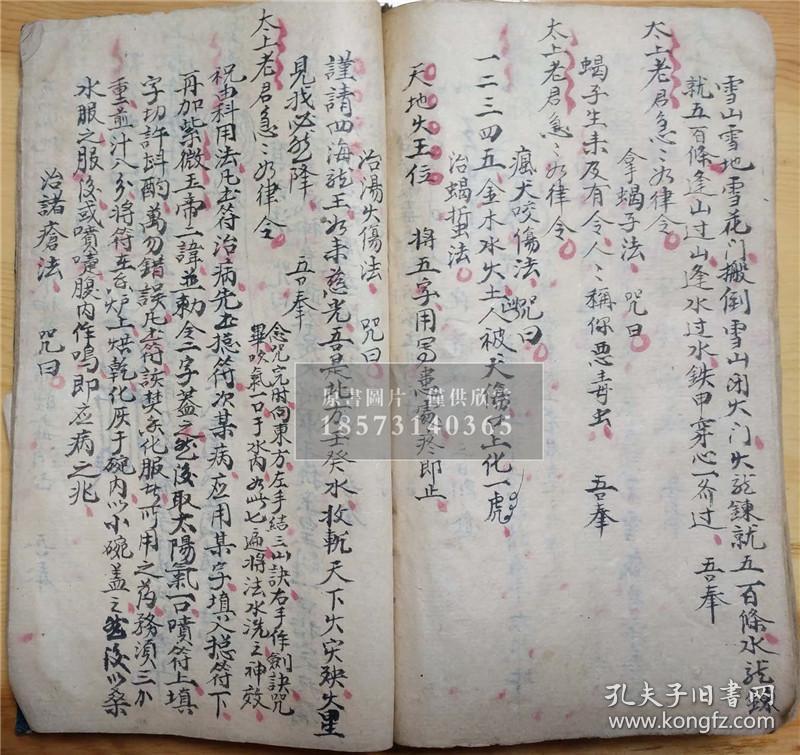 雪山雪地雪花门搬倒雪山闭火门火龍鍊就五百條水龍鍊
就五百條逢山过山逢水过水鉄甲穿心一斉过 吾奉
太上老君急〻如律令
拿蝎子法 咒曰
蝎子生未及有令人〻稱你恶毒虫 吾奉
太上老君急〻如律令
瘋犬咬傷法 咒曰
一二三四五金木水火土人被犬傷土上化一虎
治蝎蜇法
天地火王位 将五字用写患處疼即止
治湯火傷法 咒曰
謹請四海龍王如来慈光吾是北方壬癸水收斬天下火灾殃火星
見我必然降 吾奉
太上老君急〻如律令
念咒完时向東方左手結三山訣右手作劍訣咒
畢吹氣一口于水內如此七遍将法水洗之神效
祝由科用法凡書符治病先書捴符次某病应用某字填入捴符下
再加紫微玉帝二諱並勅令二字蓋之然後取太陽氣一口噴符上填
字切許斟酌萬勿錯誤凡書符該焚化服者所用之药務須三分
重煎汁八分将符在炉上烘乾化灰于碗內以小碗蓋之然後以桑
水服之服後或噴嚏腹內作鳴即应病之兆
治諸瘡法 咒曰
原書圖片 僅供欣賞
18573140365
孔夫子旧书网
kongfz.com